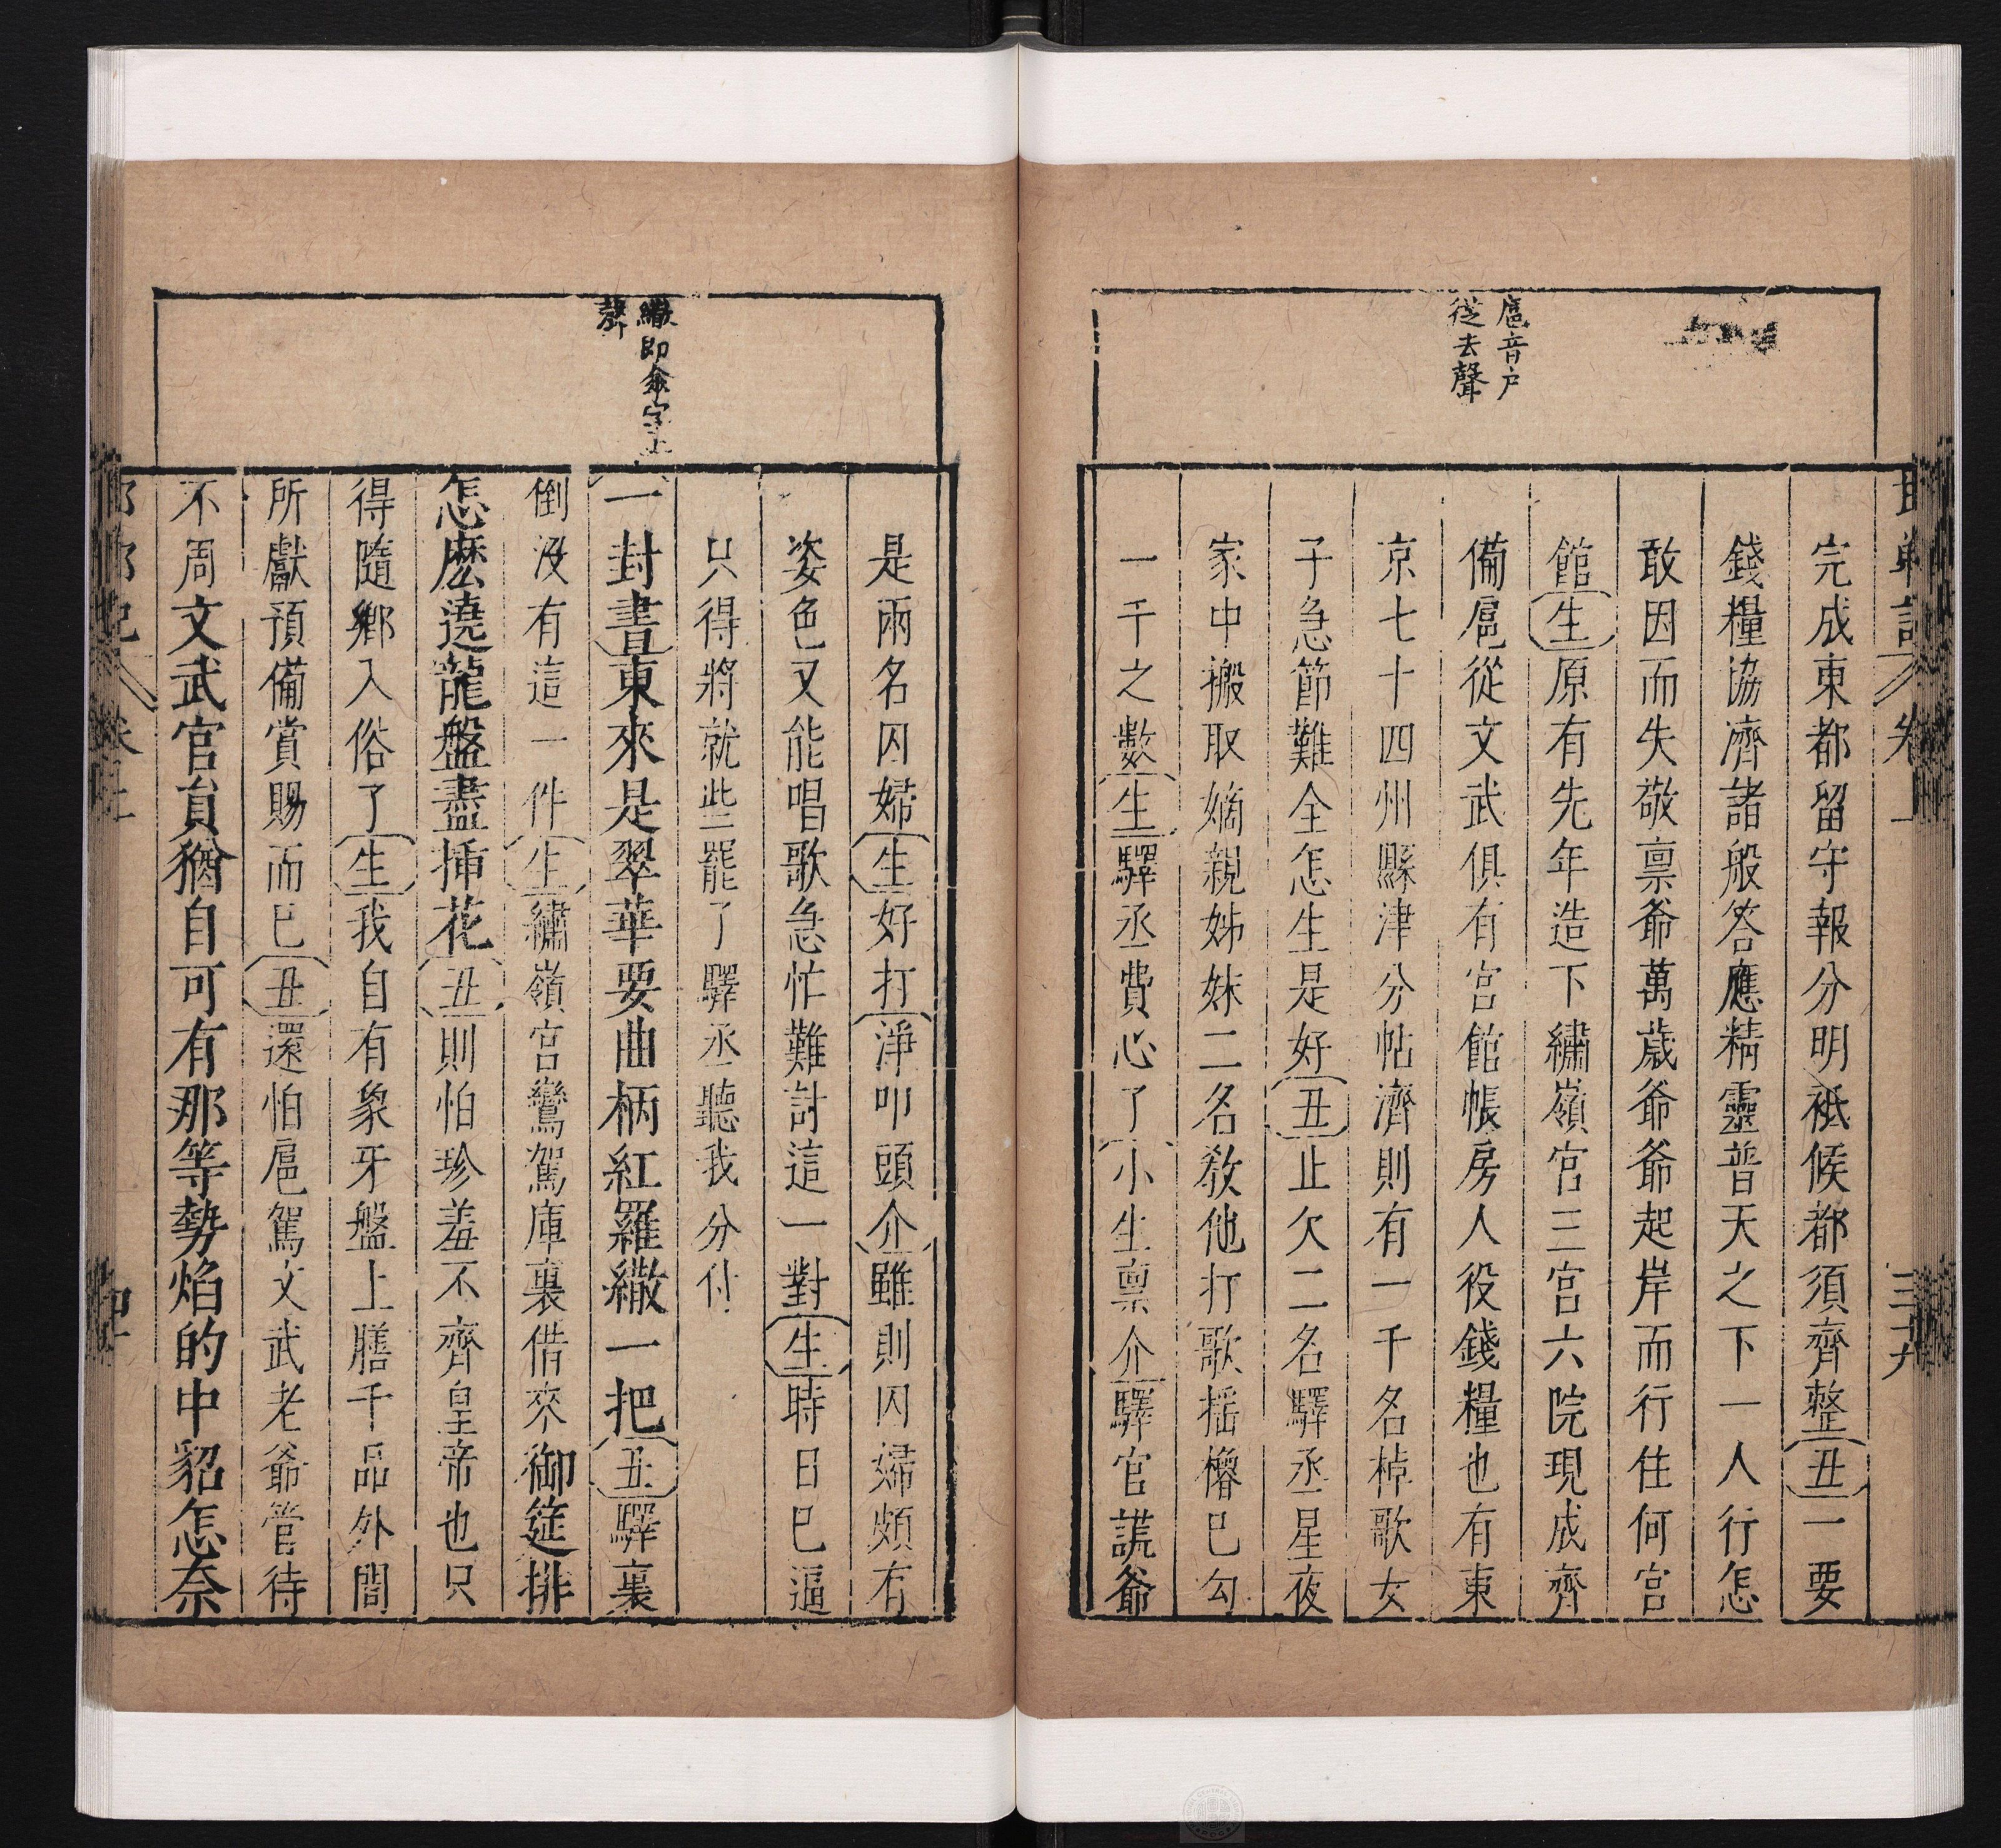 扈音戶
從去聲
完成東都留守報分明祗候都須齊整丑一要
錢糧協濟諸般答應精靈普天之下一人行怎
敢因而失敬禀爺萬歲爺爺起岸而行住何宮
館生原有先年造下繡嶺宮三宮六院現成齊
備扈從文武俱有宮館帳房人役錢糧也有東
京七十四州縣津分帖濟則有一千名棹歌女
子急節難全怎生是好丑止欠二名驛丞星夜
家中搬取嫡親姊妹二名教他打歌搖櫓已勾
一千之數生驛丞費心了小生禀介驛官謊爺
繖即傘字上
聲
是兩名囚婦生好打淨叩頭介雖則囚婦頗有
姿色又能唱歌急忙難討這一對生時日已逼
只得將就些罷了驛丞聽我分付
一封書東來是翠華要曲柄紅羅繖一把丑驛裏
倒沒有這一件生繡嶺宮鸞駕庫裏借來御筵排
怎麽遶龍盤盡揷花丑則怕珍羞不齊皇帝也只
得隨鄉入俗了生我自有象牙盤上膳千品外間
所獻預備賞賜而已丑還怕扈駕文武老爺管待
不周文武官員猶自可有那等勢焰的中貂怎奈